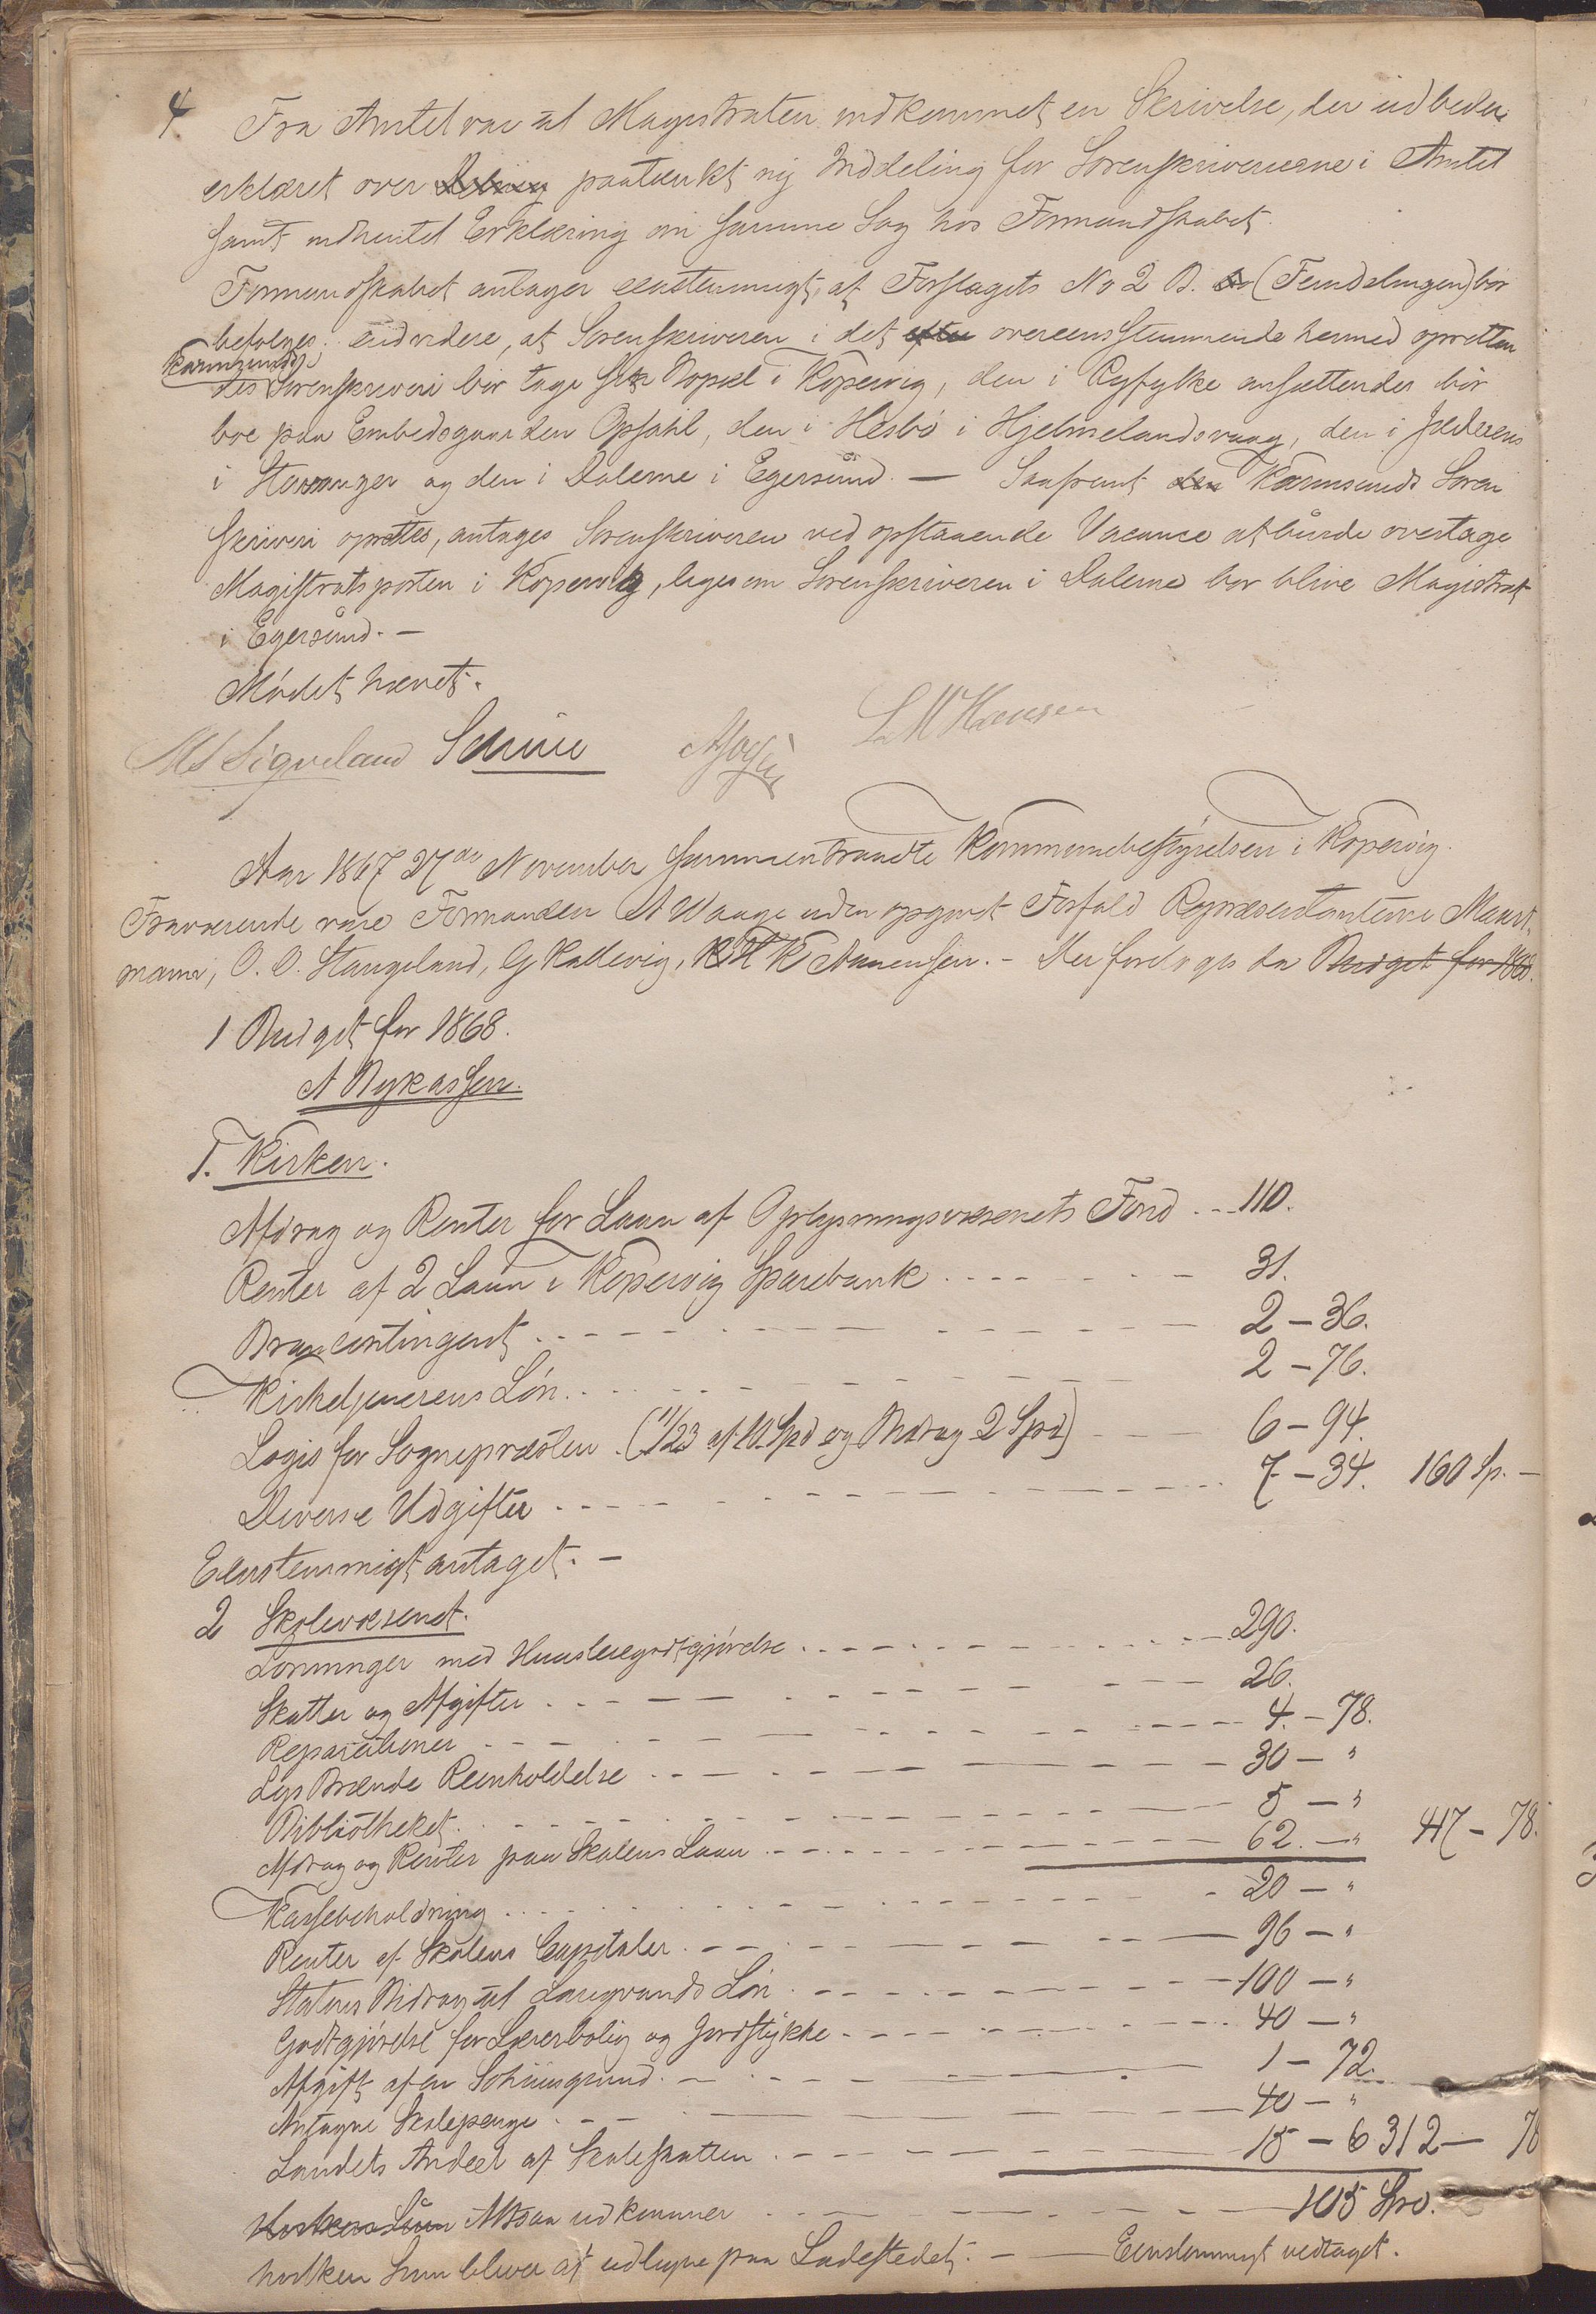 4 Fra Amtet var til Magistraten indkommet en Skrivelse, der udbeder
erklæret over paatænkt ny Inddeling for Sorenskriverierne i Amtet
samt indhentet Erklæring om samme Sag hos Formandskabet.
Formandskabet antager eenstemmigt, at Forslagets No 2 B. (Femdelingen) bør
befølges. endvidere, at Sorenskriveren i det efter overeensstemmende hermed opretten
Karmsunds
des Sorenskriveri bør tage sin Bopæl i Kopervig, den i Ryfylke ansættendes bør
boe paa Embedsgaarden Opsahl, den i Hesbø i Hjelmelandsvaag, den i Jæderens
i Stavanger og den i Dalerne i Egersund. — Saafremt den Karmsunds Soren
skriveri oprettes, antages Sorenskriveren ved opstaaende Vacance at burde overtage
Magistratsposten i Kopervig, ligesom Sorenskriveren i Dalerne bør blive Magistrat
i Egersund. —
Mødet hævet.
Sigveland L M Hansen
Aar 1867 27de November sammentraadte Kommunebestyrelsen i Kopervig.
Fraværende vare Formanden A Waage uden opgivet Forfald Repræsentanterne Maart
mann, O. O. Stangeland, G Kallevig, K Aanensen. - Der foretoges da Budget for 1868.
1 Budget for 1868.
A Bykassen.
1. Kirken.
Afdrag og Renter for Laan af Oplysningsvæsenets Fond .. 110.
Renter af 2 Laan i Kopervig Sparebank .... 31.
Brancontingent .... 2 - 36.
Kirketjenerens Løn .... 2 - 76.
Logis for Sognepræsten. (11/23 af 10 Spd og Bidrag 2 Spd) 6 - 94.
Diverse Udgifter .... 7 - 34. 160 Sp. -
Eenstemmigt antaget. -
2 Skolevæsenet.
Lønninger med Huusleiegodtgjørelse .... 290.
Skatter og Afgifter .... 26.
Reparationer .... 4. - 78.
Lys Brænde Reenholdelse .... 30 - "
Bibliotheket .... 5 - "
Afdrag og Renter paa Skolens Laan .... 62. - " 417 - 78.
Kassebeholdning .... 20 - "
Renter af Skolens Capitaler .... 96 - "
Statens Bidrag til Løn .... 100 - "
Godtgjørelse for Lærerbolig og Jordstykke .... 40 - "
Afgift af en .... 1 - 72.
Antagne Skolepenge .... 40 - "
Landets Andeel af Skoleskatten .... 15 - 6 312 - 78
Altsaa udkommer .... 105 Spd.
hvilken Sum bliver at udligne paa Ladestedet. — Eenstemmigt vedtaget.